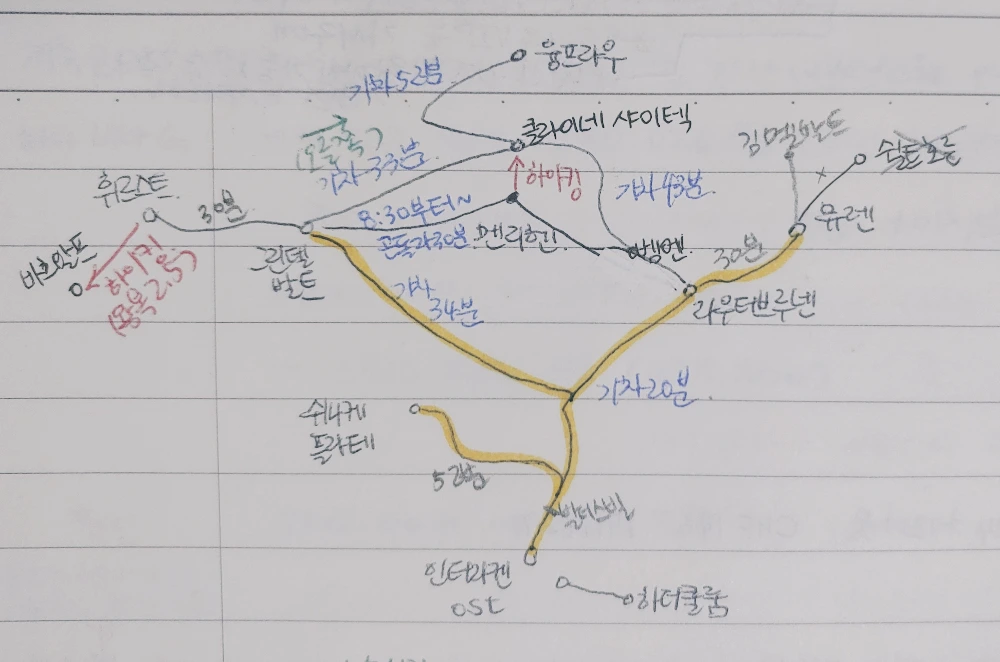 융프라우
기차52분
클라이네 샤이덱
(오른쪽)
기차 33분.
하이킹
기차 43분.
김멜발트
쉴트호른
휘르스트
30분
8:30부터~
곤돌라30분.
멘리헨.
벵엔
뮤렌
30분
바흐알프
하이킹
(왕복2.5)
그린델
발트
기차
34분
라우터브루넨
기차20분.
쉬니케
플라테
52분
빌더스빌
인터라켄
ost
하더쿨룸